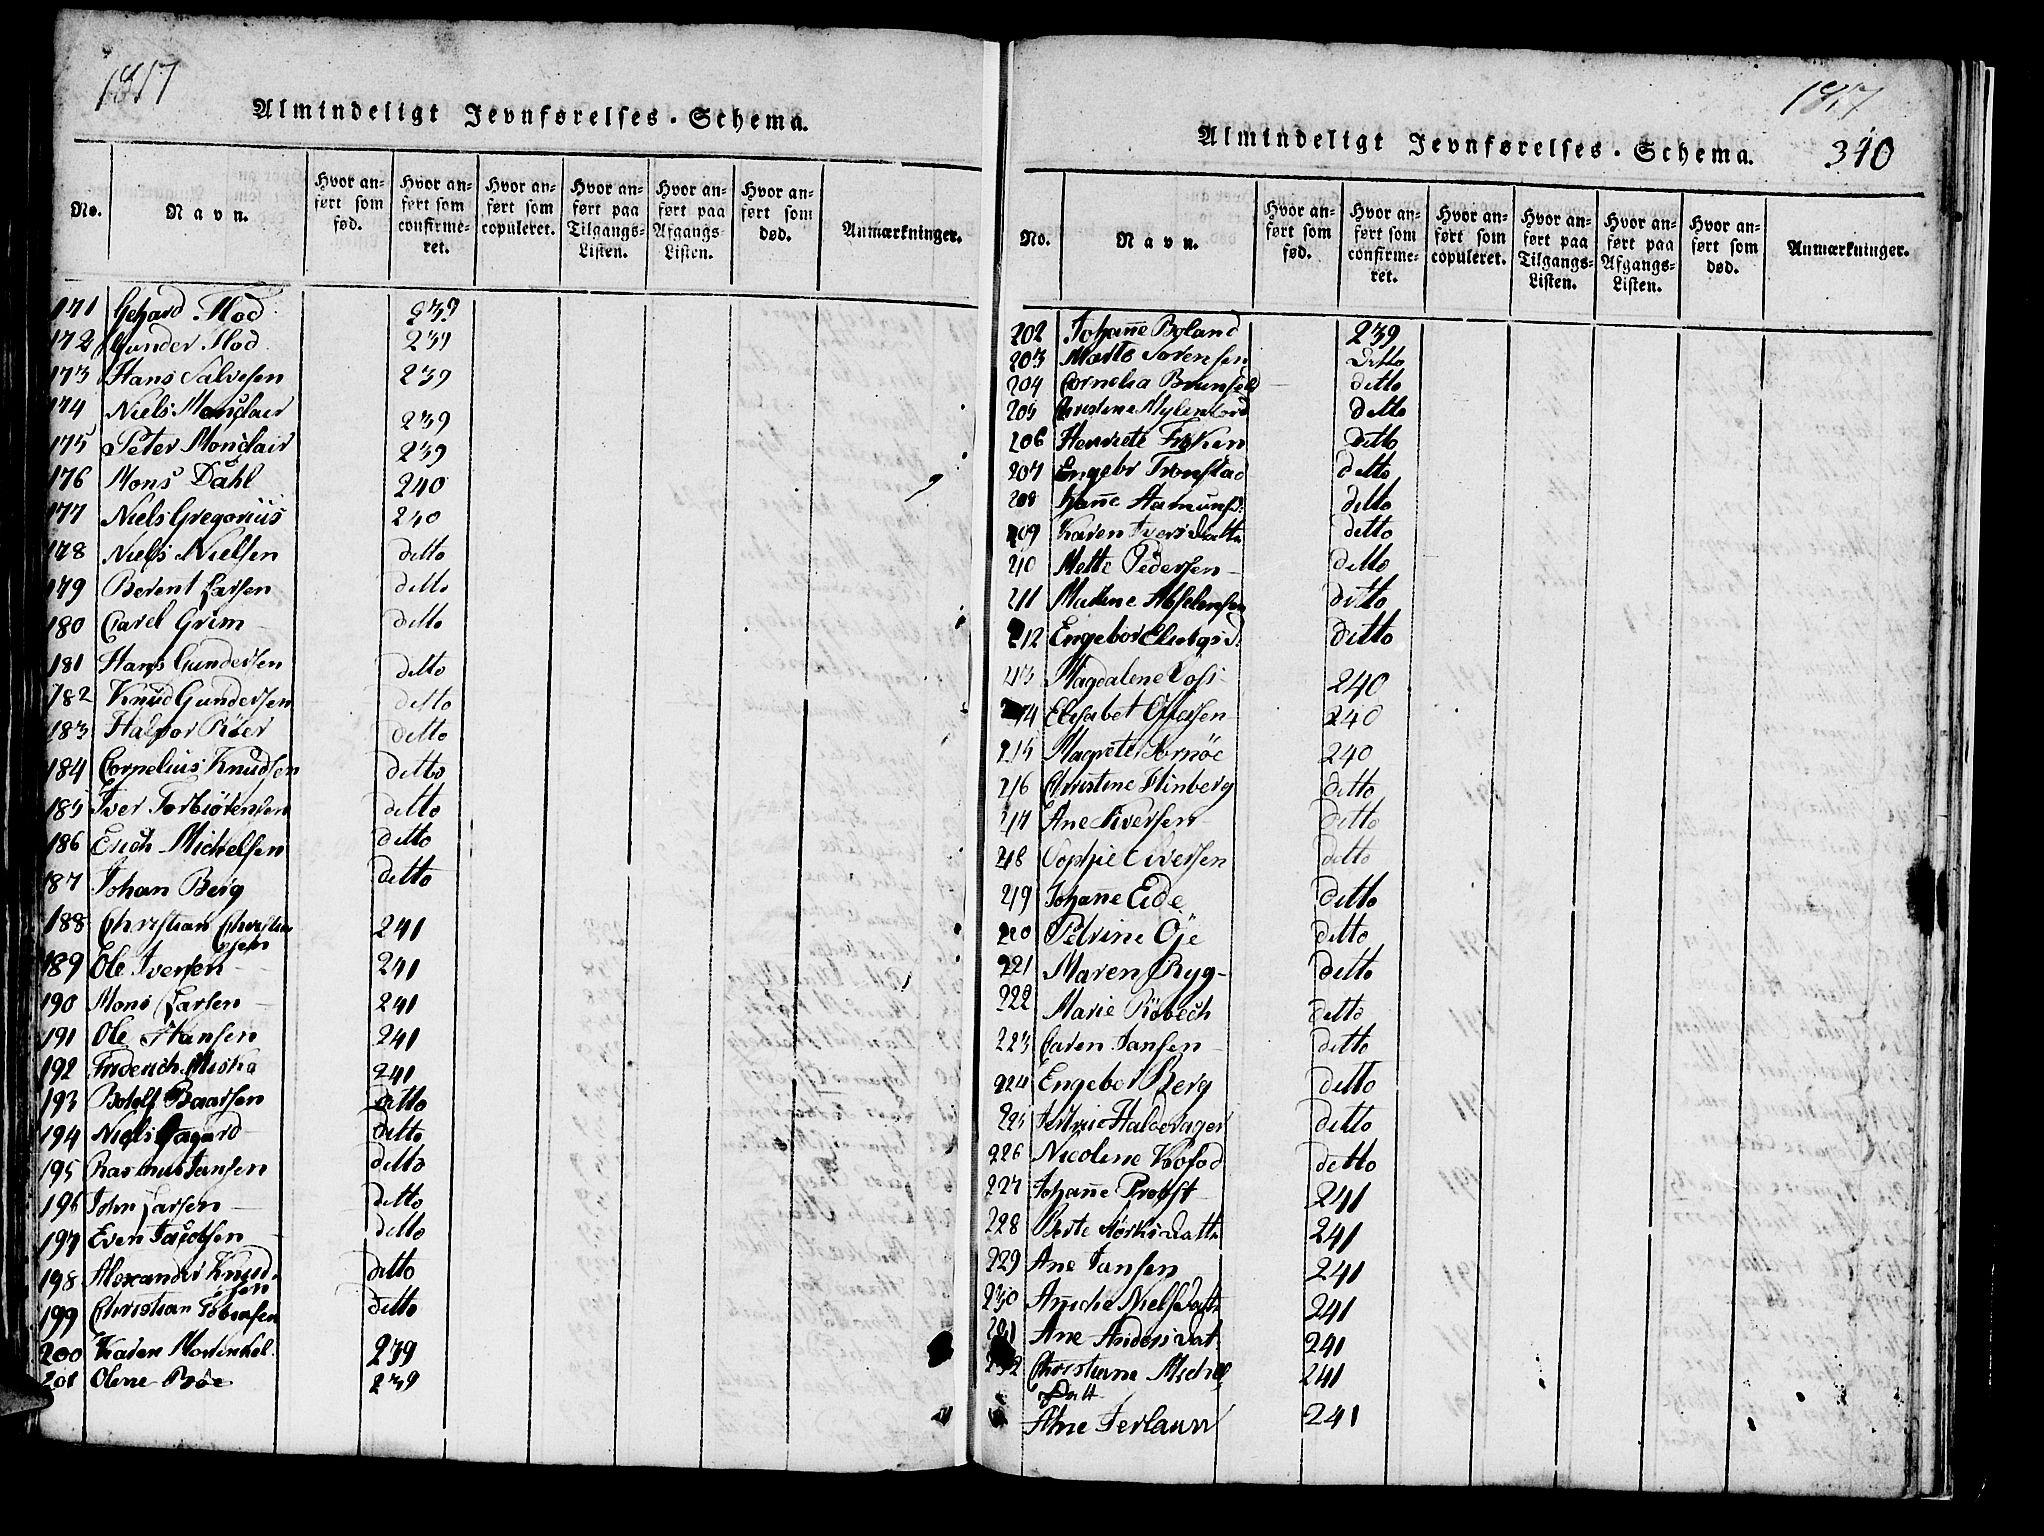 1817
Almindeligt Jevnførelses-Schema.
No.
Navn.
Hvor anført som fød.
Hvor anført som confirmeret.
Hvor anført som copuleret.
Hvor anført paa Tilgangs-Listen.
Hvor anført paa Afgangs-Listen.
Hvor anført som død.
Anmærkninger.
171 Gehard Flod 239
172 Gunder Flod 239
173 Hans Salvesen 239
174 Niels Monclair 239
175 Peter Monclair 239
176 Mons Dahl 240
177 Niels Gregorius 240
178 Niels Nielsen ditto
179 Berent Larsen ditto
180 Carel Grim ditto
181 Hans Gundersen ditto
182 Knud Gundersen ditto
183 Halvor Röer ditto
184 Cornelius Knudsen ditto
185 Iver Torbiörensen ditto
186 Erich Michelsen ditto
187 Johan Berg ditto
188 Christian Christiansen 241
189 Ole Iversen 241
190 Mons Larsen 241
191 Ole Hansen 241
192 Friderich 241
193 Botolf Baarsen ditto
194 Niels ditto
195 Rasmus Jansen ditto
196 John Larsen ditto
197 Even Jacobsen ditto
198 Alexander Knudsen ditto
199 Christian Tobiasen ditto
200 Karen Mortinkel 239
201 Olene Böe 239
1817
340
Almindeligt Jevnførelses-Schema.
No.
Navn.
Hvor anført som fød.
Hvor anført som confirmeret.
Hvor anført som copuleret.
Hvor anført paa Tilgangs-Listen.
Hvor anført paa Afgangs-Listen.
Hvor anført som død.
Anmærkninger.
202 Johañe Boland 239
203 Marte Sörensen Ditto
204 Cornelia ditto
205 Christine ditto
206 Henriete Fröken ditto
207 Engebr Tronstad ditto
208 Hañe Aamunsd. ditto
209 Karen Iversdatr ditto
210 Mette Pedersen ditto
211 Malene Abselonsen ditto
212 Engebor ditto
213 Magdalene 240
214 Elisabet 240
215 Magrete Tornöe 240
216 Christine Hinberg ditto
217 Ane Siversen ditto
218 Sophie Siversen ditto
219 Johañe Eide ditto
220 Petrine Öje ditto
221 Maren Ryg ditto
222 Marie Röbech ditto
223 Caren Jansen ditto
224 Engebor Berg ditto
225 Haldorager ditto
226 Nicoline Kofod ditto
227 Johañe Probst 241
228 Berte 241
229 Ane Jansen 241
230 Añicke Nielsdatr 241
231 Ane Andersdat 241
232 Christiane Michelsdatt 241
Ane Jerlaun 241